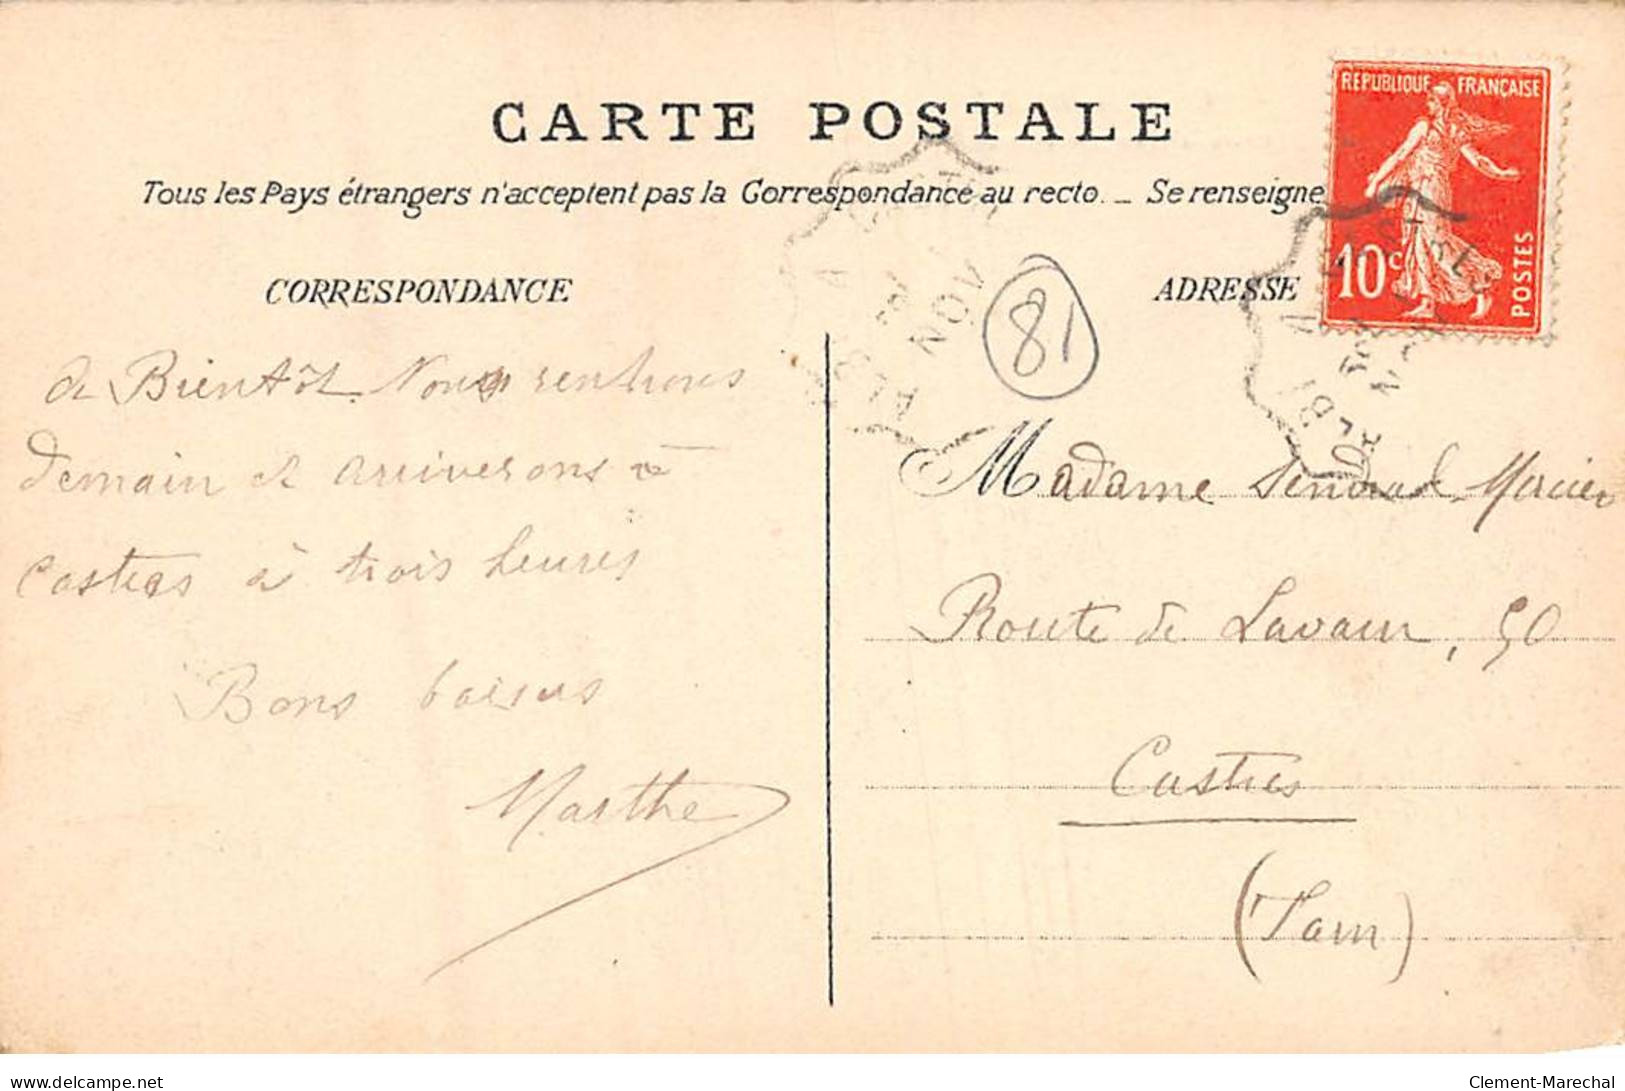 CARTE POSTALE
Tous les Pays étrangers n'acceptent pas la Correspondance au recto. _ Se renseigne
CORRESPONDANCE
ADRESSE
REPUBLIQUE FRANÇAISE
10c
POSTES
NOV
81
à Bientôt. Nous rentrons
demain et arriverons à
Castres à trois heures
Bons baisers
Marthe
Madame
Route de Lavaur, 50
Castres
(Tarn)
delcampe.net
Clement-Marechal